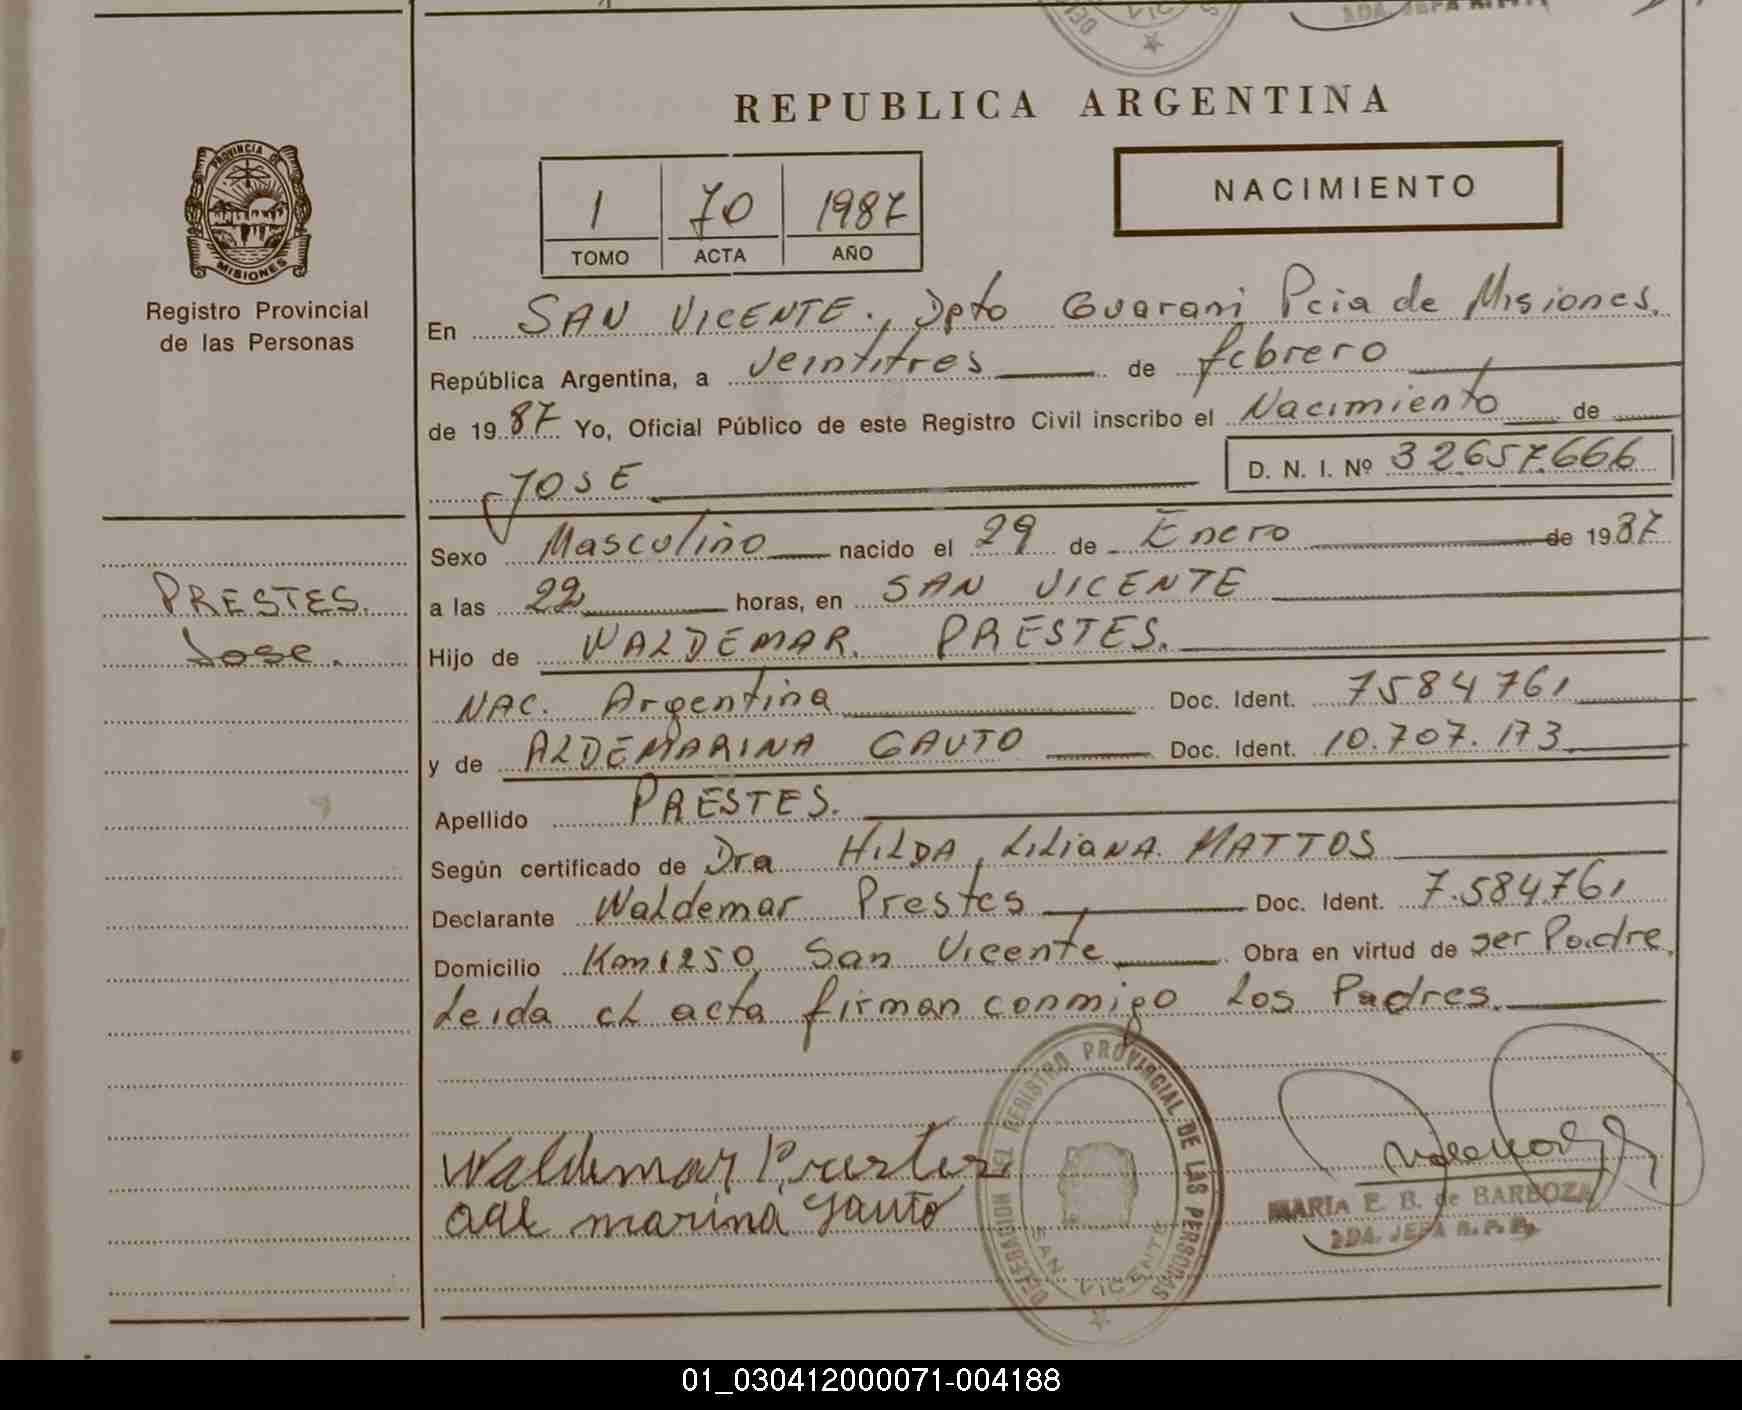 REPUBLICA ARGENTINA
PROVINCIA DE
MISIONES
Registro Provincial
de las Personas
1 70 1987
TOMO ACTA AÑO
NACIMIENTO
En SAN VICENTE., Dpto Guarani Pcia de Misiones.
República Argentina, a veintitres de febrero
de 1987 Yo, Oficial Público de este Registro Civil inscribo el Nacimiento de
JOSE D. N. I. Nº 32657.666
Sexo Masculino nacido el 29 de Enero de 1987
PRESTES.
Jose.
a las 22 horas, en SAN VICENTE
Hijo de WALDEMAR. PRESTES.
NAC. Argentina Doc. Ident. 7584761
y de ALDEMARINA GAUTO Doc. Ident. 10.707.173
Apellido PRESTES.
Según certificado de Dra HILDA LILIANA MATTOS
Declarante Waldemar Prestes Doc. Ident. 7.584761
Domicilio Km 1250 San Vicente Obra en virtud de ser Padre.
Leida el acta firman conmigo Los Padres.
Waldemar Prestes
marina Gauto
DELEGACION DEL REGISTRO PROVINCIAL DE LAS PERSONAS
SAN VICENTE
MARIA E. B. de BARBOZA
2DA. JEFA R. P. P.
01_030412000071-004188